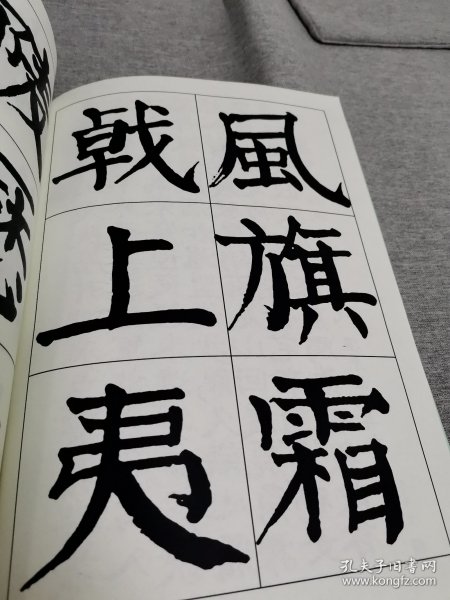 風旗霜
戟上夷
孔夫子旧书网
www.kongfz.com